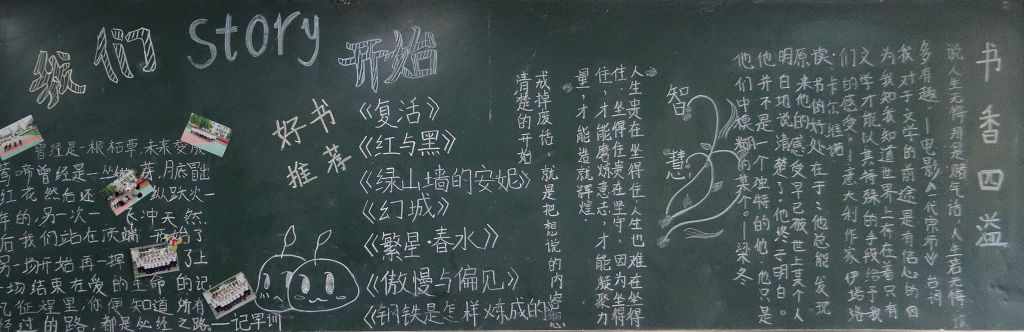 我们 Story 开始
曾经是一根枯草,未来变成
秀啼曾经是一丛荠,月底冒出
红花然后还 纵跃火一
年的,另一次一 飞冲天.然
后我们站在顶端 开始了
另一场开始再一挥 了上
一切结束在爱的生命的记
征程里,你便知道所有
经过的路,都是必经之路
—记军训
好书
推荐
《复活》
《红与黑》
《绿山墙的安妮》
《幻城》
《繁星·春水》
《傲慢与偏见》
《钢铁是怎样炼成的》
戒掉废话,就是把想说的内容想
清楚的开始
人生贵在坐得住人生也难在坐得
住,坐得住贵在坚守,因为坐得
住,才能磨炼意志,才能凝聚力
量,才能造就辉煌
智慧
书香四溢
说人生无悔那是赌气话,人生若无悔该
多有趣 —电影《一代宗师》台词
我对于文学的前途是有信心的因
为我知道世界上存在着只有
文学才能以其特殊的手段给予我
们的感受 —意大利作家伊塔洛
·卡尔维诺
读书的好处在于:他总能发现
原来他的感受早已被世上某个人
明白地说清楚了。他终于明白。
他并不是一个独特的他,他只是
他们中模糊的某个。—梁冬